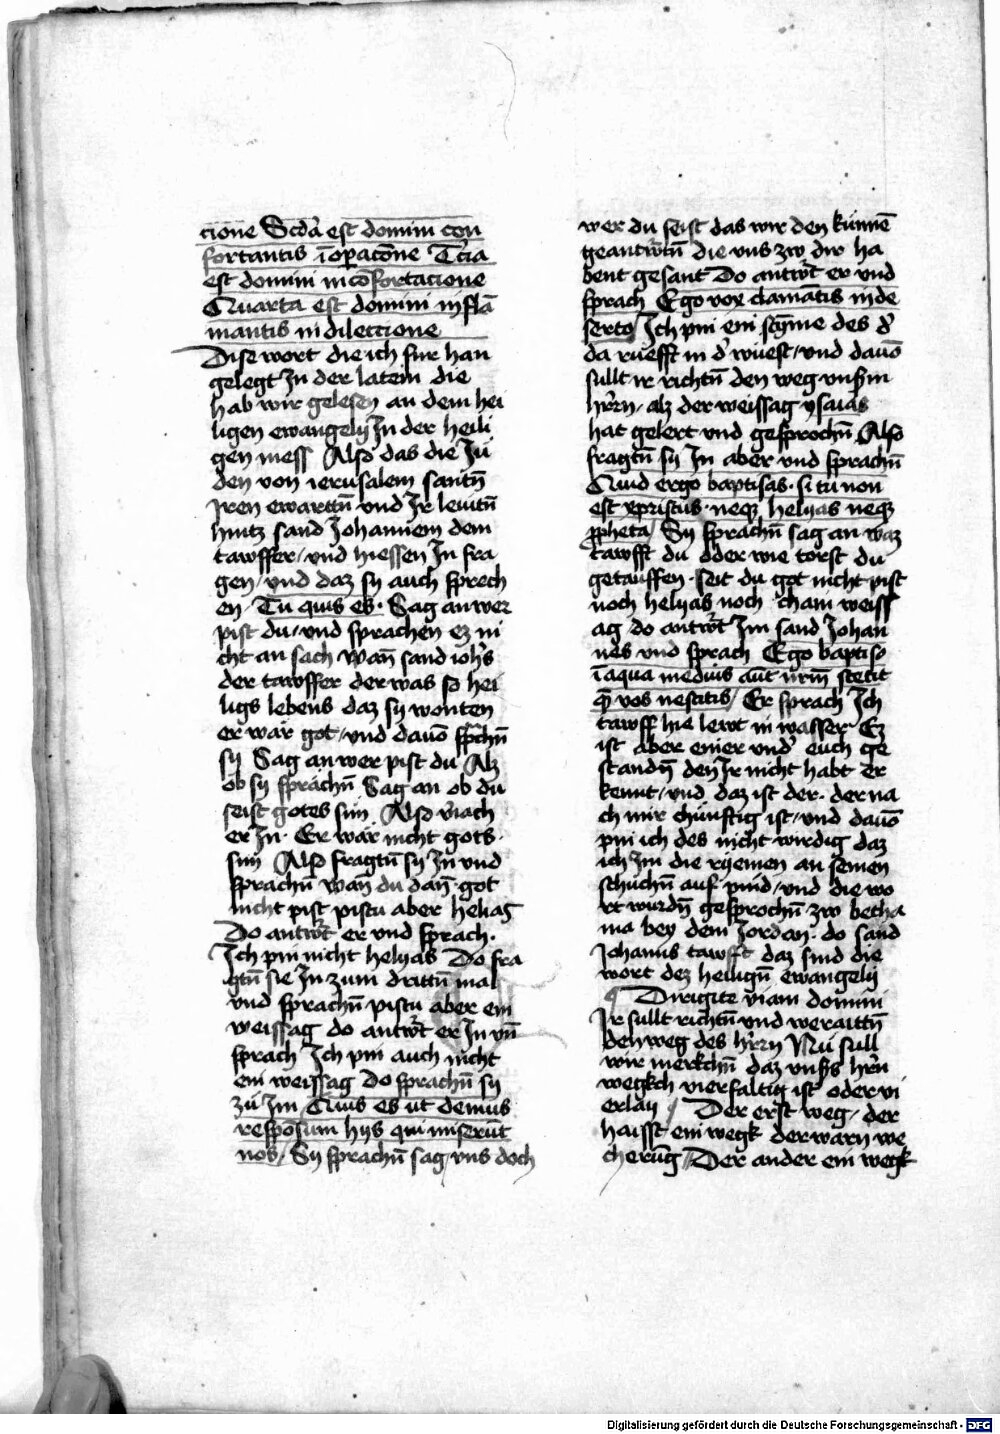 cione Scda est domini con
fortantis ī opacōne Tcia
est domini in cōfortacione
Quarta est domini inflā
mantis in dileccione
Dise wort die ich fur han
gelegt Jn der latein die
hab wir gelesen an dem hei
ligen ewangelij Jn der heili
gen mess Also das die Ju
den von ierusalem santn̄
Jren ewarttn̄ vnd Jr leuitn̄
hintz sand Johannem dem
tawffer / vnd hiessen Jn fra
gen / vnd daz sy auch sprech
en / Tu quis es · Sag an wer
pist du / vnd sprachen ez ni
cht an sach Wan̄ sand ioh's
der tawffer der was so hei
ligs lebens daz sy wonten
er wär got / vnd dauō sprachn̄
sy Sag an wer pist du Alz
ob sy sprachn̄ Sag an ob du
seist gotes sun Also v'iach
er Jn · Er wär nicht gots
sun Also fragtn̄ sy Jn vnd
sprachn̄ Wan̄ du dan̄ got
nicht pist pistu aber helias
Do antw't er vnd sprach ·
Ich pin nicht helyas Do fra
gtn̄ sie Jn zum drittn̄ mal
vnd sprachn̄ pistu aber ein
weissag do antw't er Jn vn̄
sprach Ich pin auch nicht
ein weissag Do sprachn̄ sy
zu Jm Quis es ut demus
responsum hijs qui miserūt
nos / Sy sprachn̄ sag vns doch
wer du seist das wir den kunnē
geantw'tn̄ die vns zw dir ha
bent gesant Do antw't er vnd
sprach Ego vox clamātis in de
serto / Ich pin ein stȳme des d'
da rüefft in d' wüest / vnd dauō
sullt ir richtn̄ den weg vns'm
h'rrn / alz der weissag ysaias
hat gelert vnd gesprochn̄ Also
fragtn̄ sy Jn aber vnd sprachn̄
Quid ergo baptisas · si tu non
est xpristus · neqz helyas neqz
ppheta / Sy sprachn̄ sag an waz
tawfft du oder wie torst du
getauffen · seit du got nicht pist
noch helyas noch chain weiss
ag do antw't Jm sand Johan
nes vnd sprach Ego baptiso
ī aqua medius aut urm̄ stetit
q̄ vos nescitis / Er sprach Ich
tawff hie lewt in wasser Ez
ist aber einer vnd' euch ge
standn̄ den Jr nicht habt er
kennt / vnd daz ist der · der na
ch mir chünftig ist / vnd dauō
pin ich des nicht wirdig daz
ich Jm die ryemen an seinen
schuchn̄ auf pind / vnd die wo
rt wurdn̄ gesprochn̄ zw betha
nia bey dem Jordan · do sand
Johanns tawfft daz sind die
wort dez heilign̄ ewangelij
¶ Dirigite viam domini
Jr sullt richtn̄ vnd weraittn̄
den weg des h'rrn Nu sull
wir merkchn̄ daz vns's h'rn
wegkch vierfaltig ist oder vi
erlay ¶ Der erst weg / der
haisst ein wegk der warn we
cherūg / Der ander ein wegk
Digitalisierung gefördert durch die Deutsche Forschungsgemeinschaft - DFG